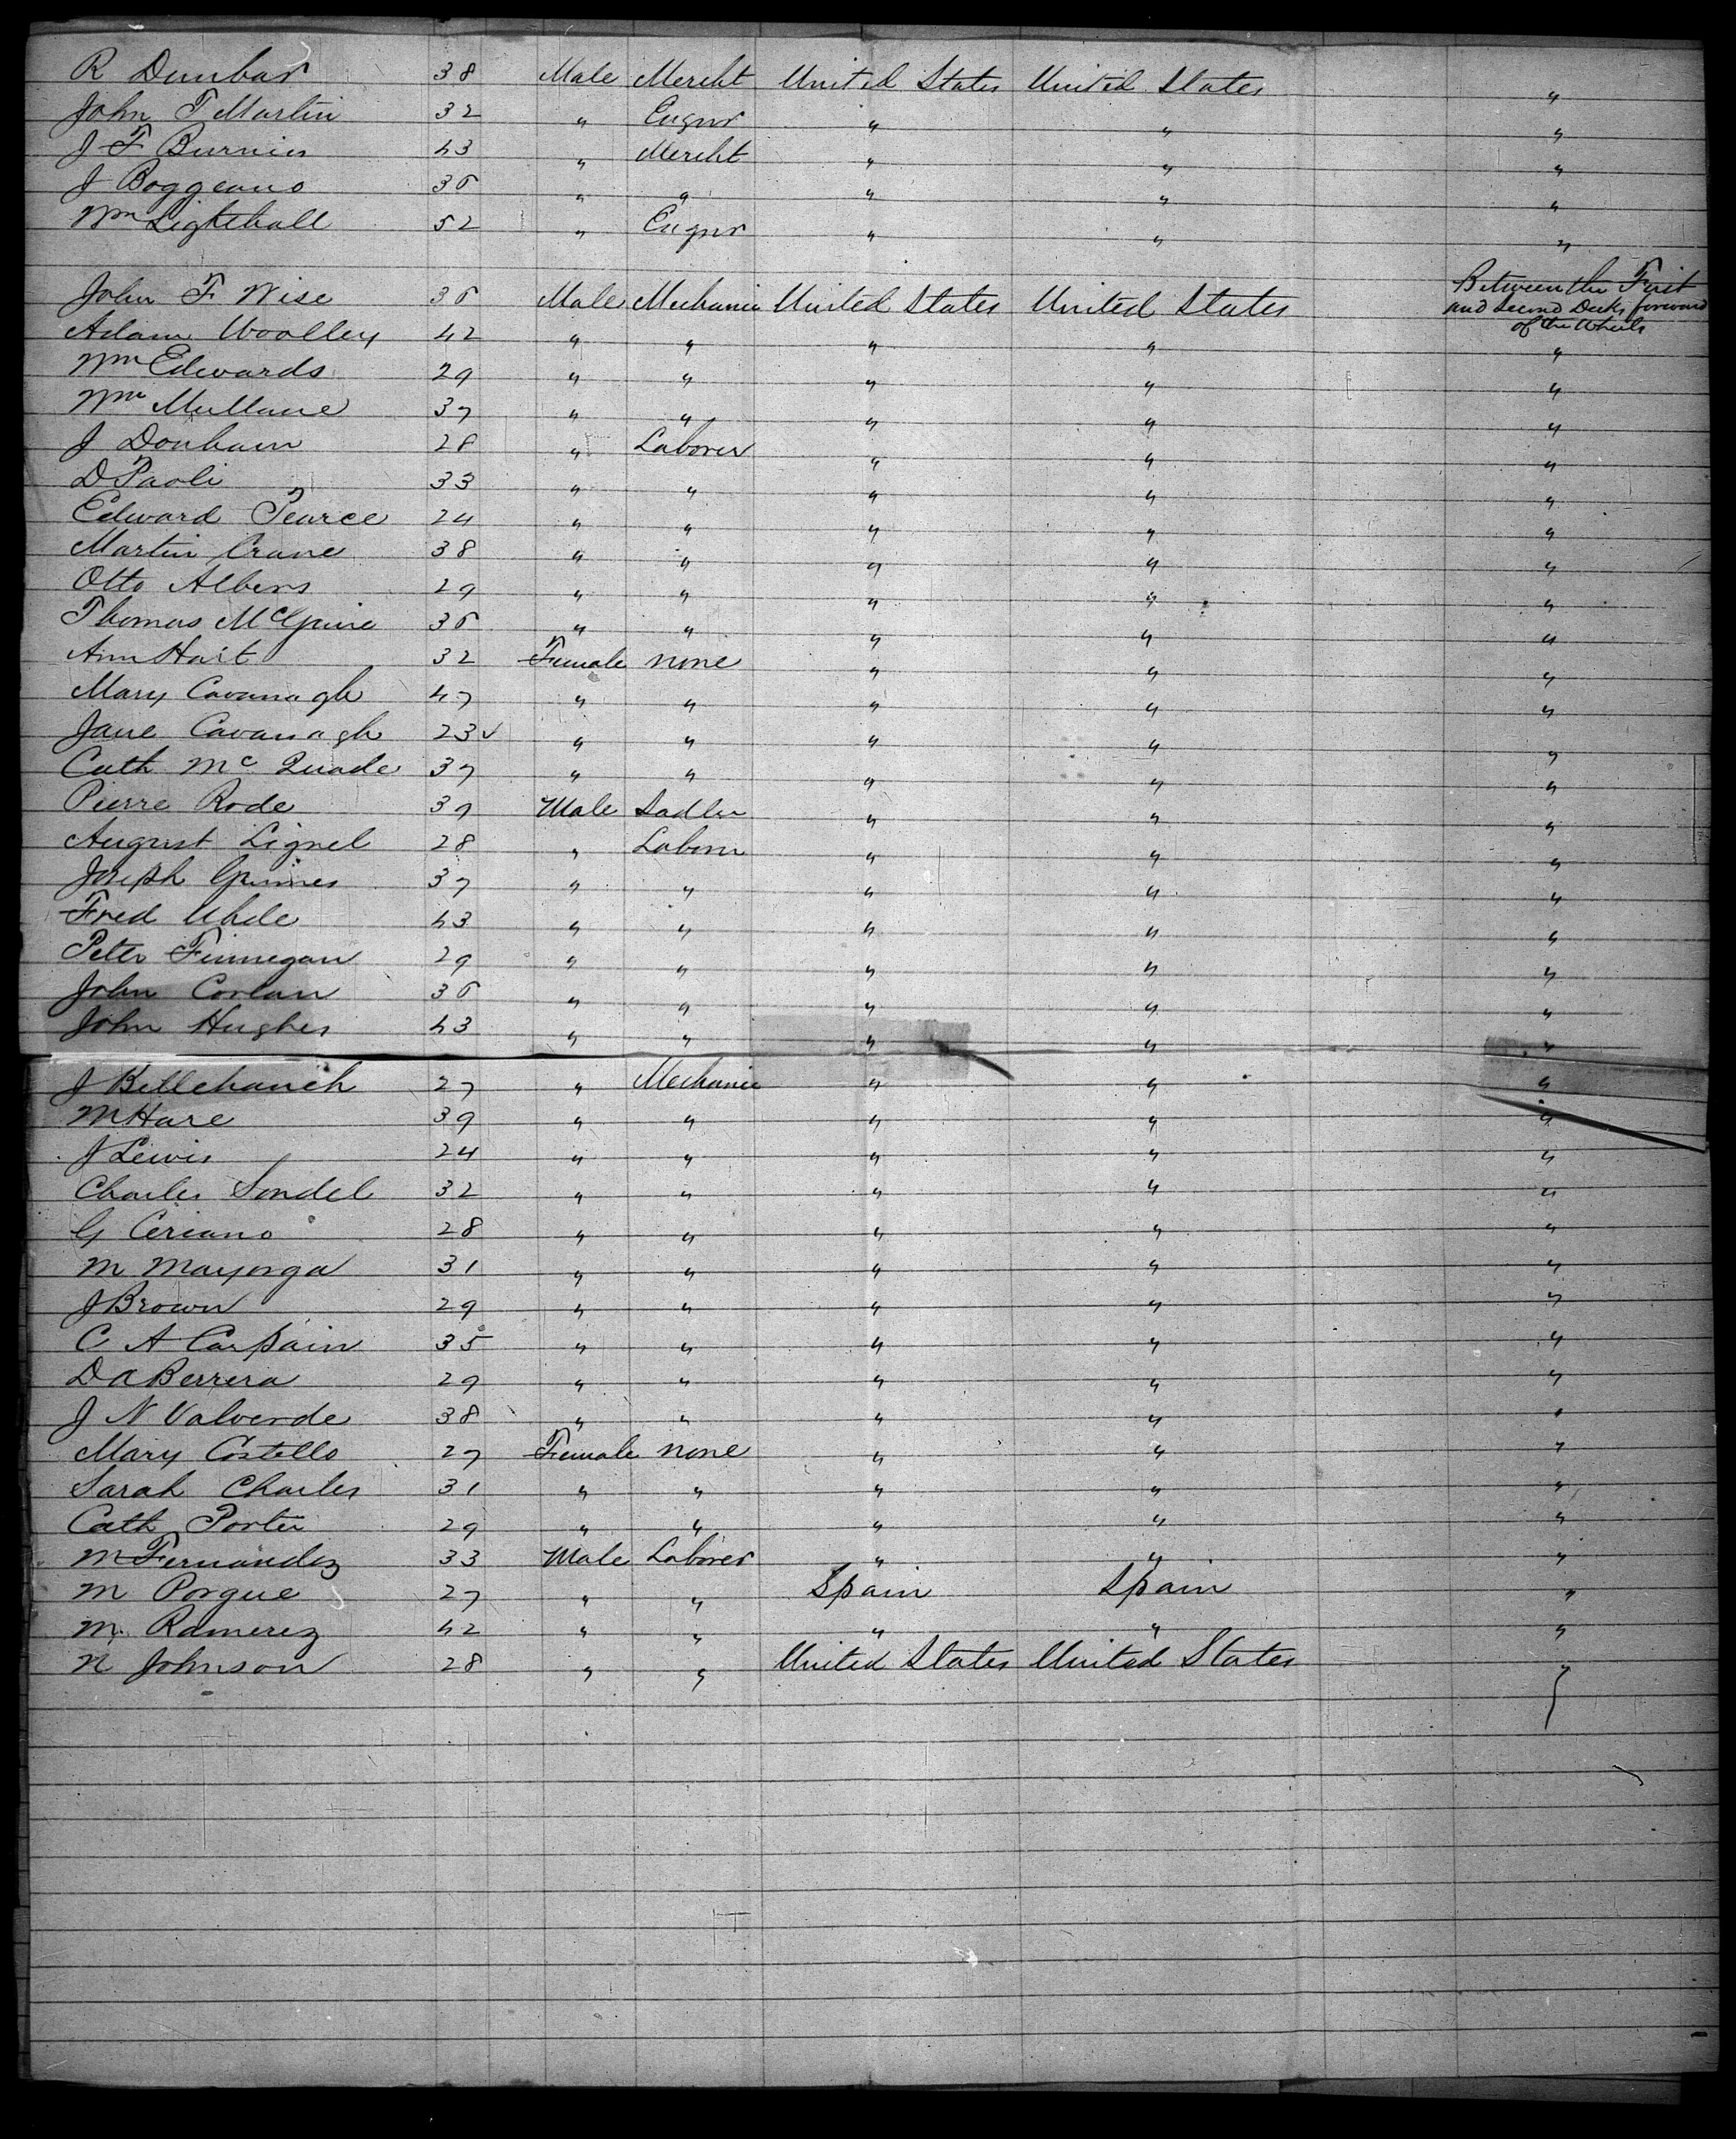 R Dunbar 38 Male Mercht United States United States "
John T Martin 32 " Engnr " " "
J F Burnies 43 " Mercht " " "
J Boggeano 36 " " " " "
Wm Lighthall 52 " Engnr " " "
John F Wise 36 Male Mechanic United States United States Between the First
and second Decks forward
of the Wheels
Adam Woolley 42 " " " " "
Wm Edwards 29 " " " " "
Wm Mullane 37 " " " " "
J Donham 28 " Laborer " " "
D Paoli 33 " " " " "
Edward Pearce 24 " " " " "
Martin Crane 38 " " " " "
Otto Albers 29 " " " " "
Thomas McGuire 36 " " " " "
Ann Hart 32 Female none " " "
Mary Cavanagh 47 " " " " "
Jane Cavanagh 23 " " " " "
Cath McQuade 37 " " " " "
Pierre Rode 39 Male Sadler " " "
August Lignel 28 " Laborer " " "
Joseph Grimes 37 " " " " "
Fred Uhde 43 " " " " "
Peter Finnegan 29 " " " " "
John Conlan 36 " " " " "
John Hughes 43 " " " " "
J Bellehauch 27 " Mechanic " " "
M Hare 39 " " " " "
J Lewis 24 " " " " "
Charles Sondel 32 " " " " "
G Ceriano 28 " " " " "
M Mayorga 31 " " " " "
J Brown 29 " " " " "
C A Carpain 35 " " " " "
D A Berrera 29 " " " " "
J N Valverde 38 " " " " "
Mary Costello 27 Female none " " "
Sarah Charles 31 " " " " "
Cath Porter 29 " " " " "
M Fernandez 33 Male Laborer " " "
M Porgue 27 " " Spain Spain "
M. Ramerez 42 " " " " "
N Johnson 28 " " United States United States "